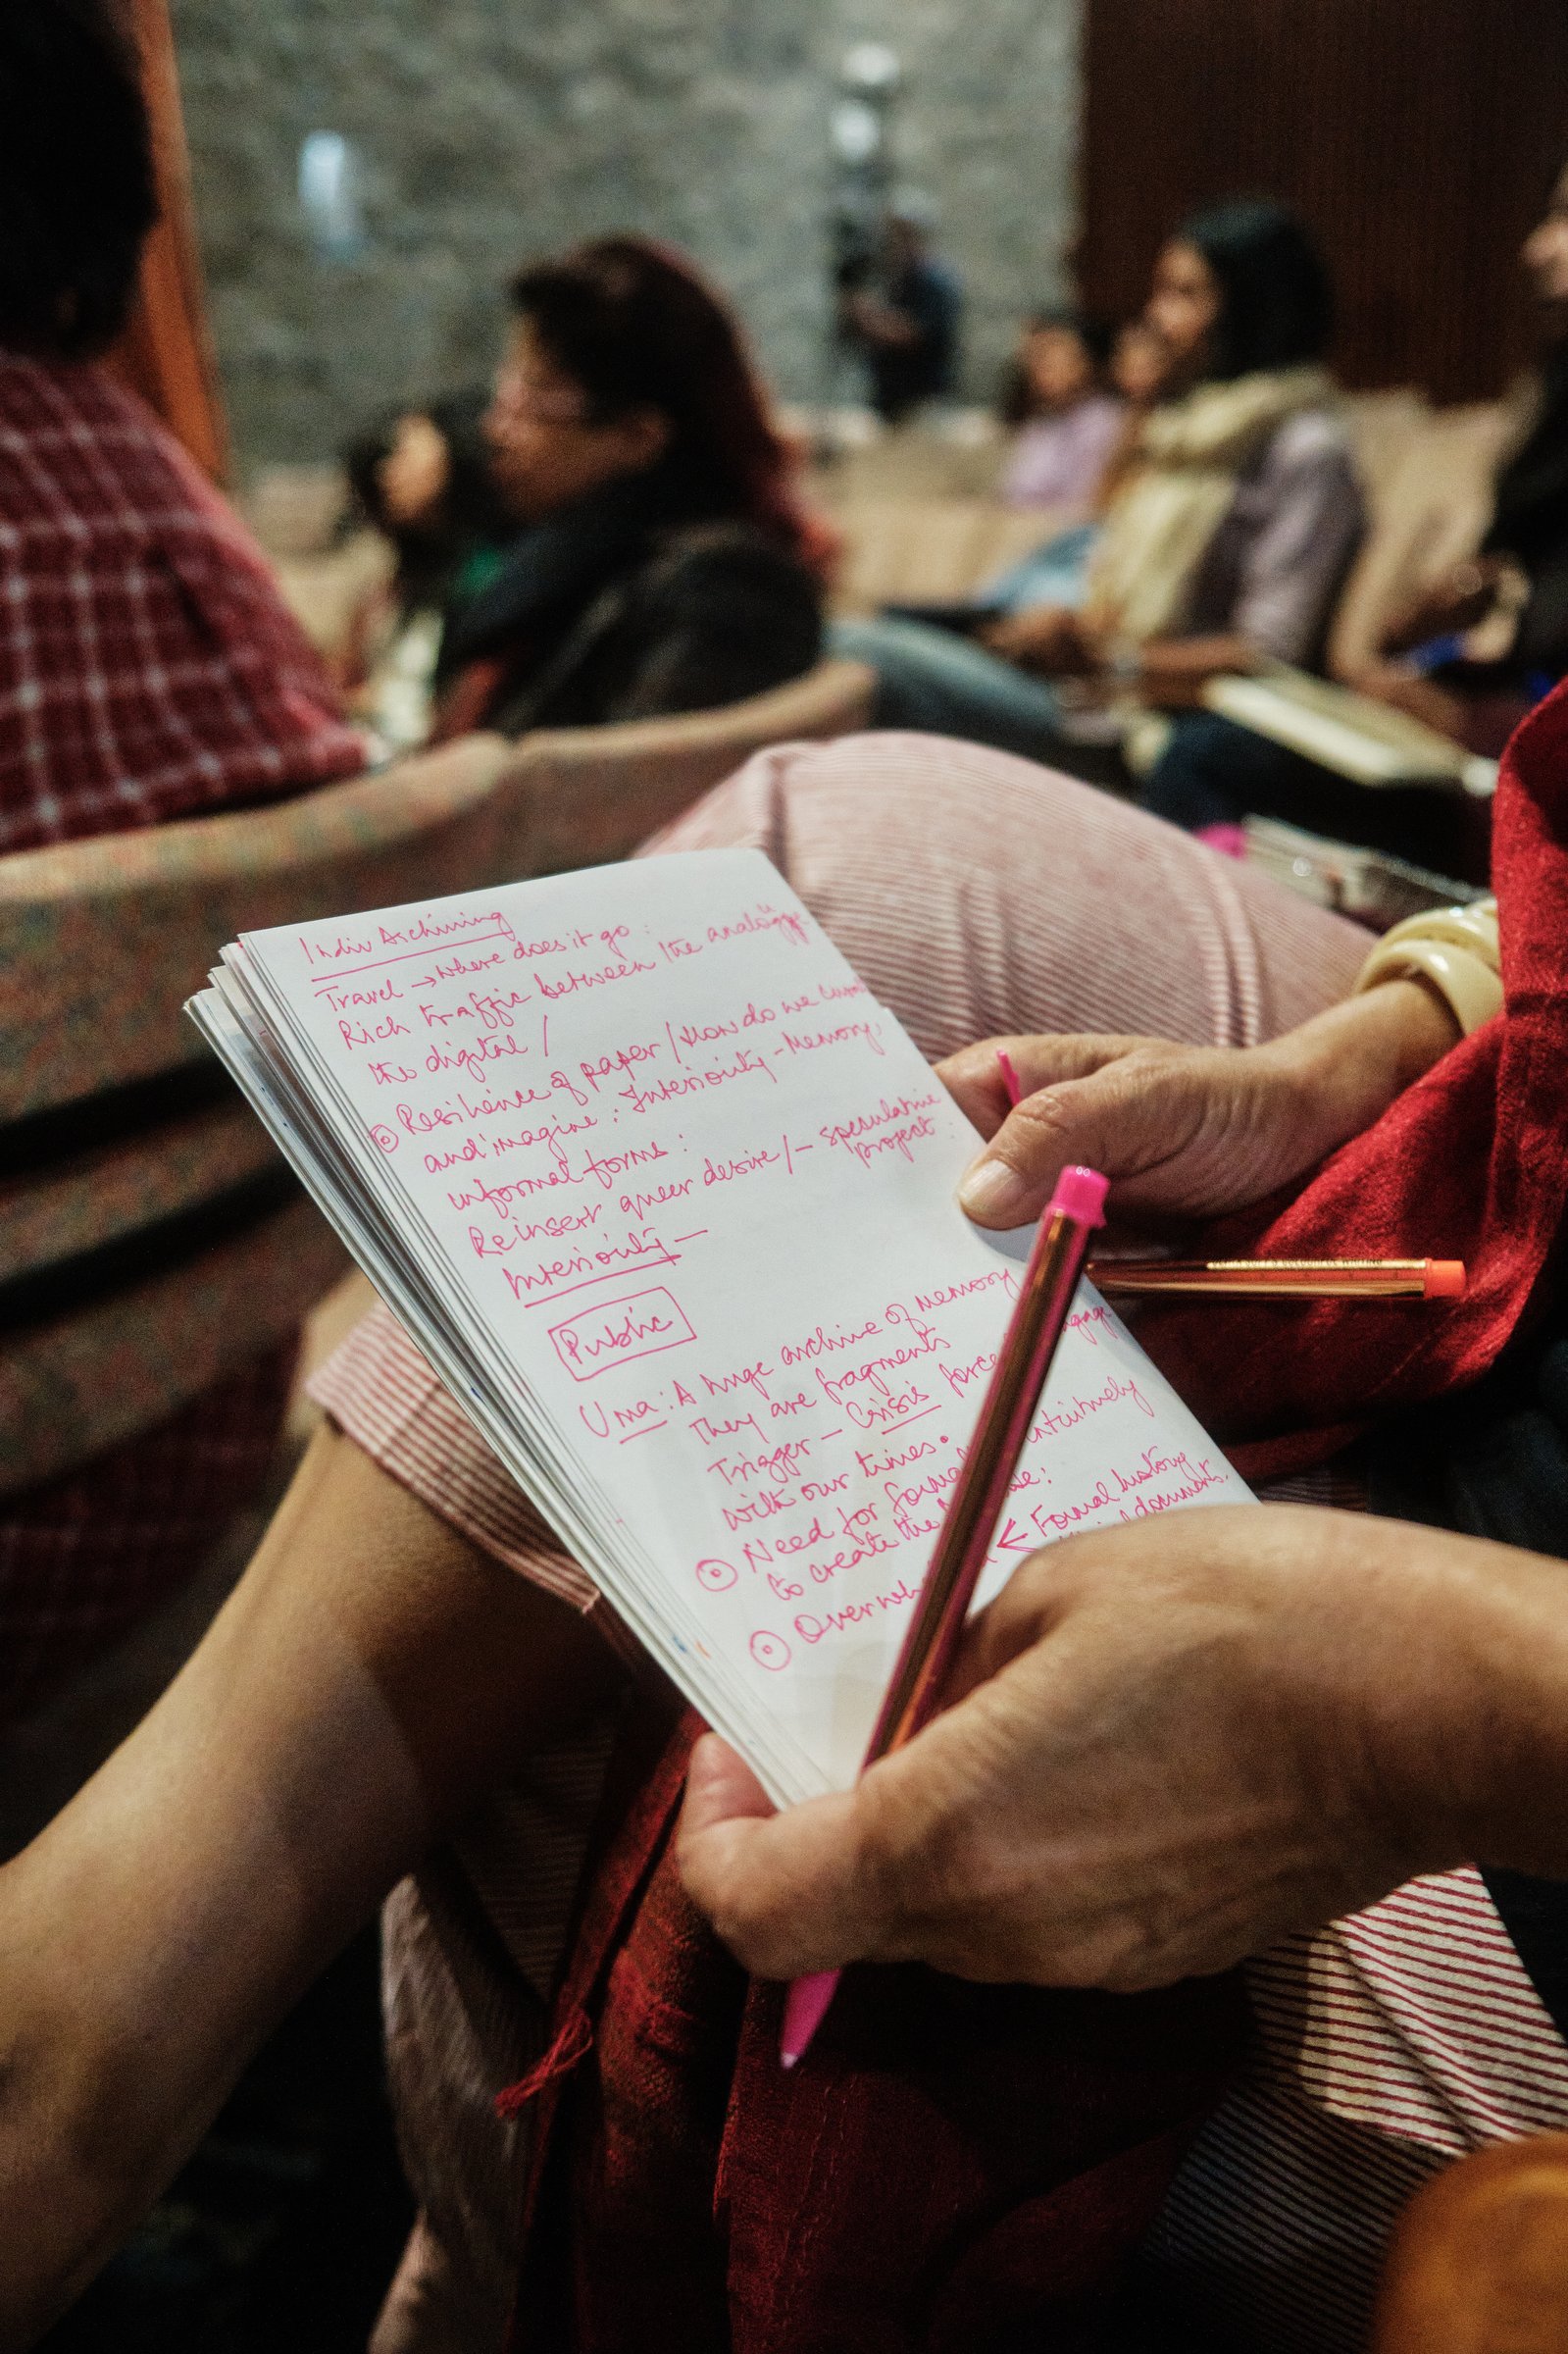 Indiv Archiving
Travel → Where does it go :
Rich traffic between the
the digital /
⊙ Resilience of paper / How do we
and imagine : Interiority - Memory
informal forms :
Reinsert queer desire / - speculative
project
Interiority —
Public
Uma : A huge archive of memory
They are fragments
Trigger — Crisis
with our times •
⊙ Need for intuitively
to create the
← Formal history
document
⊙